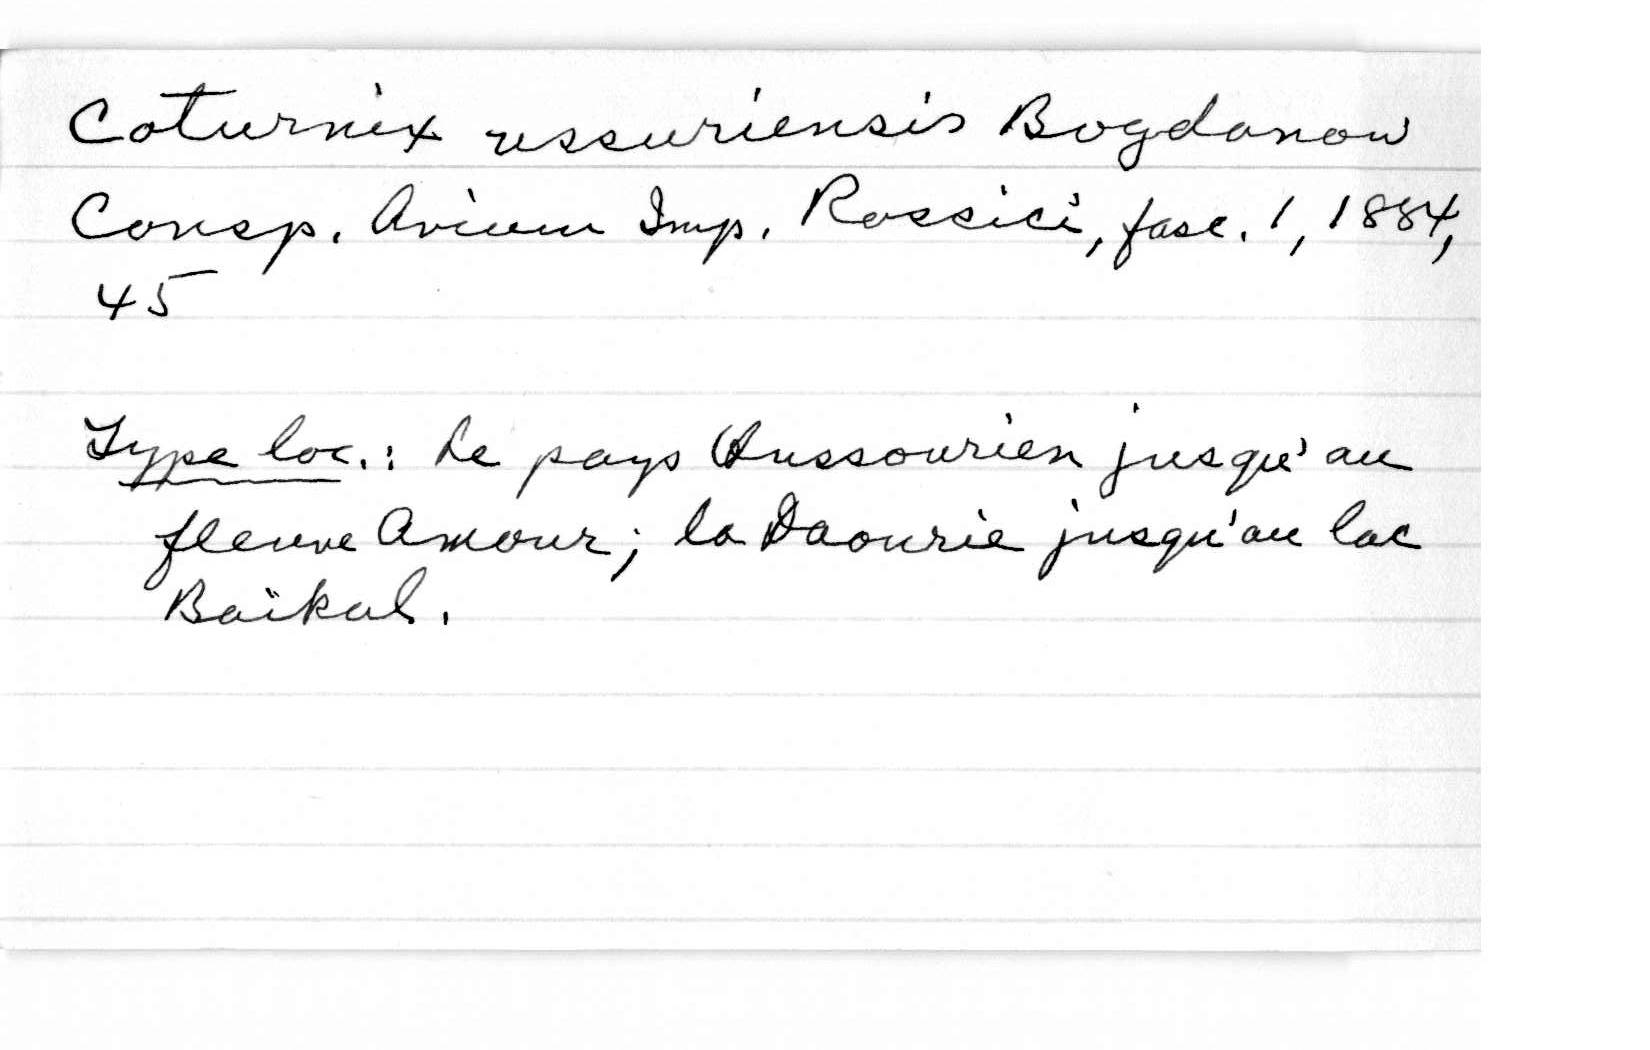 Coturnix ussuriensis Bogdanow
Consp. Avium Imp. Rossici, fasc. 1, 1884,
45
Type loc.: Le pays Oussourien jusqu'au
fleuve Amour; la Daourie jusqu'au lac
Baïkal.